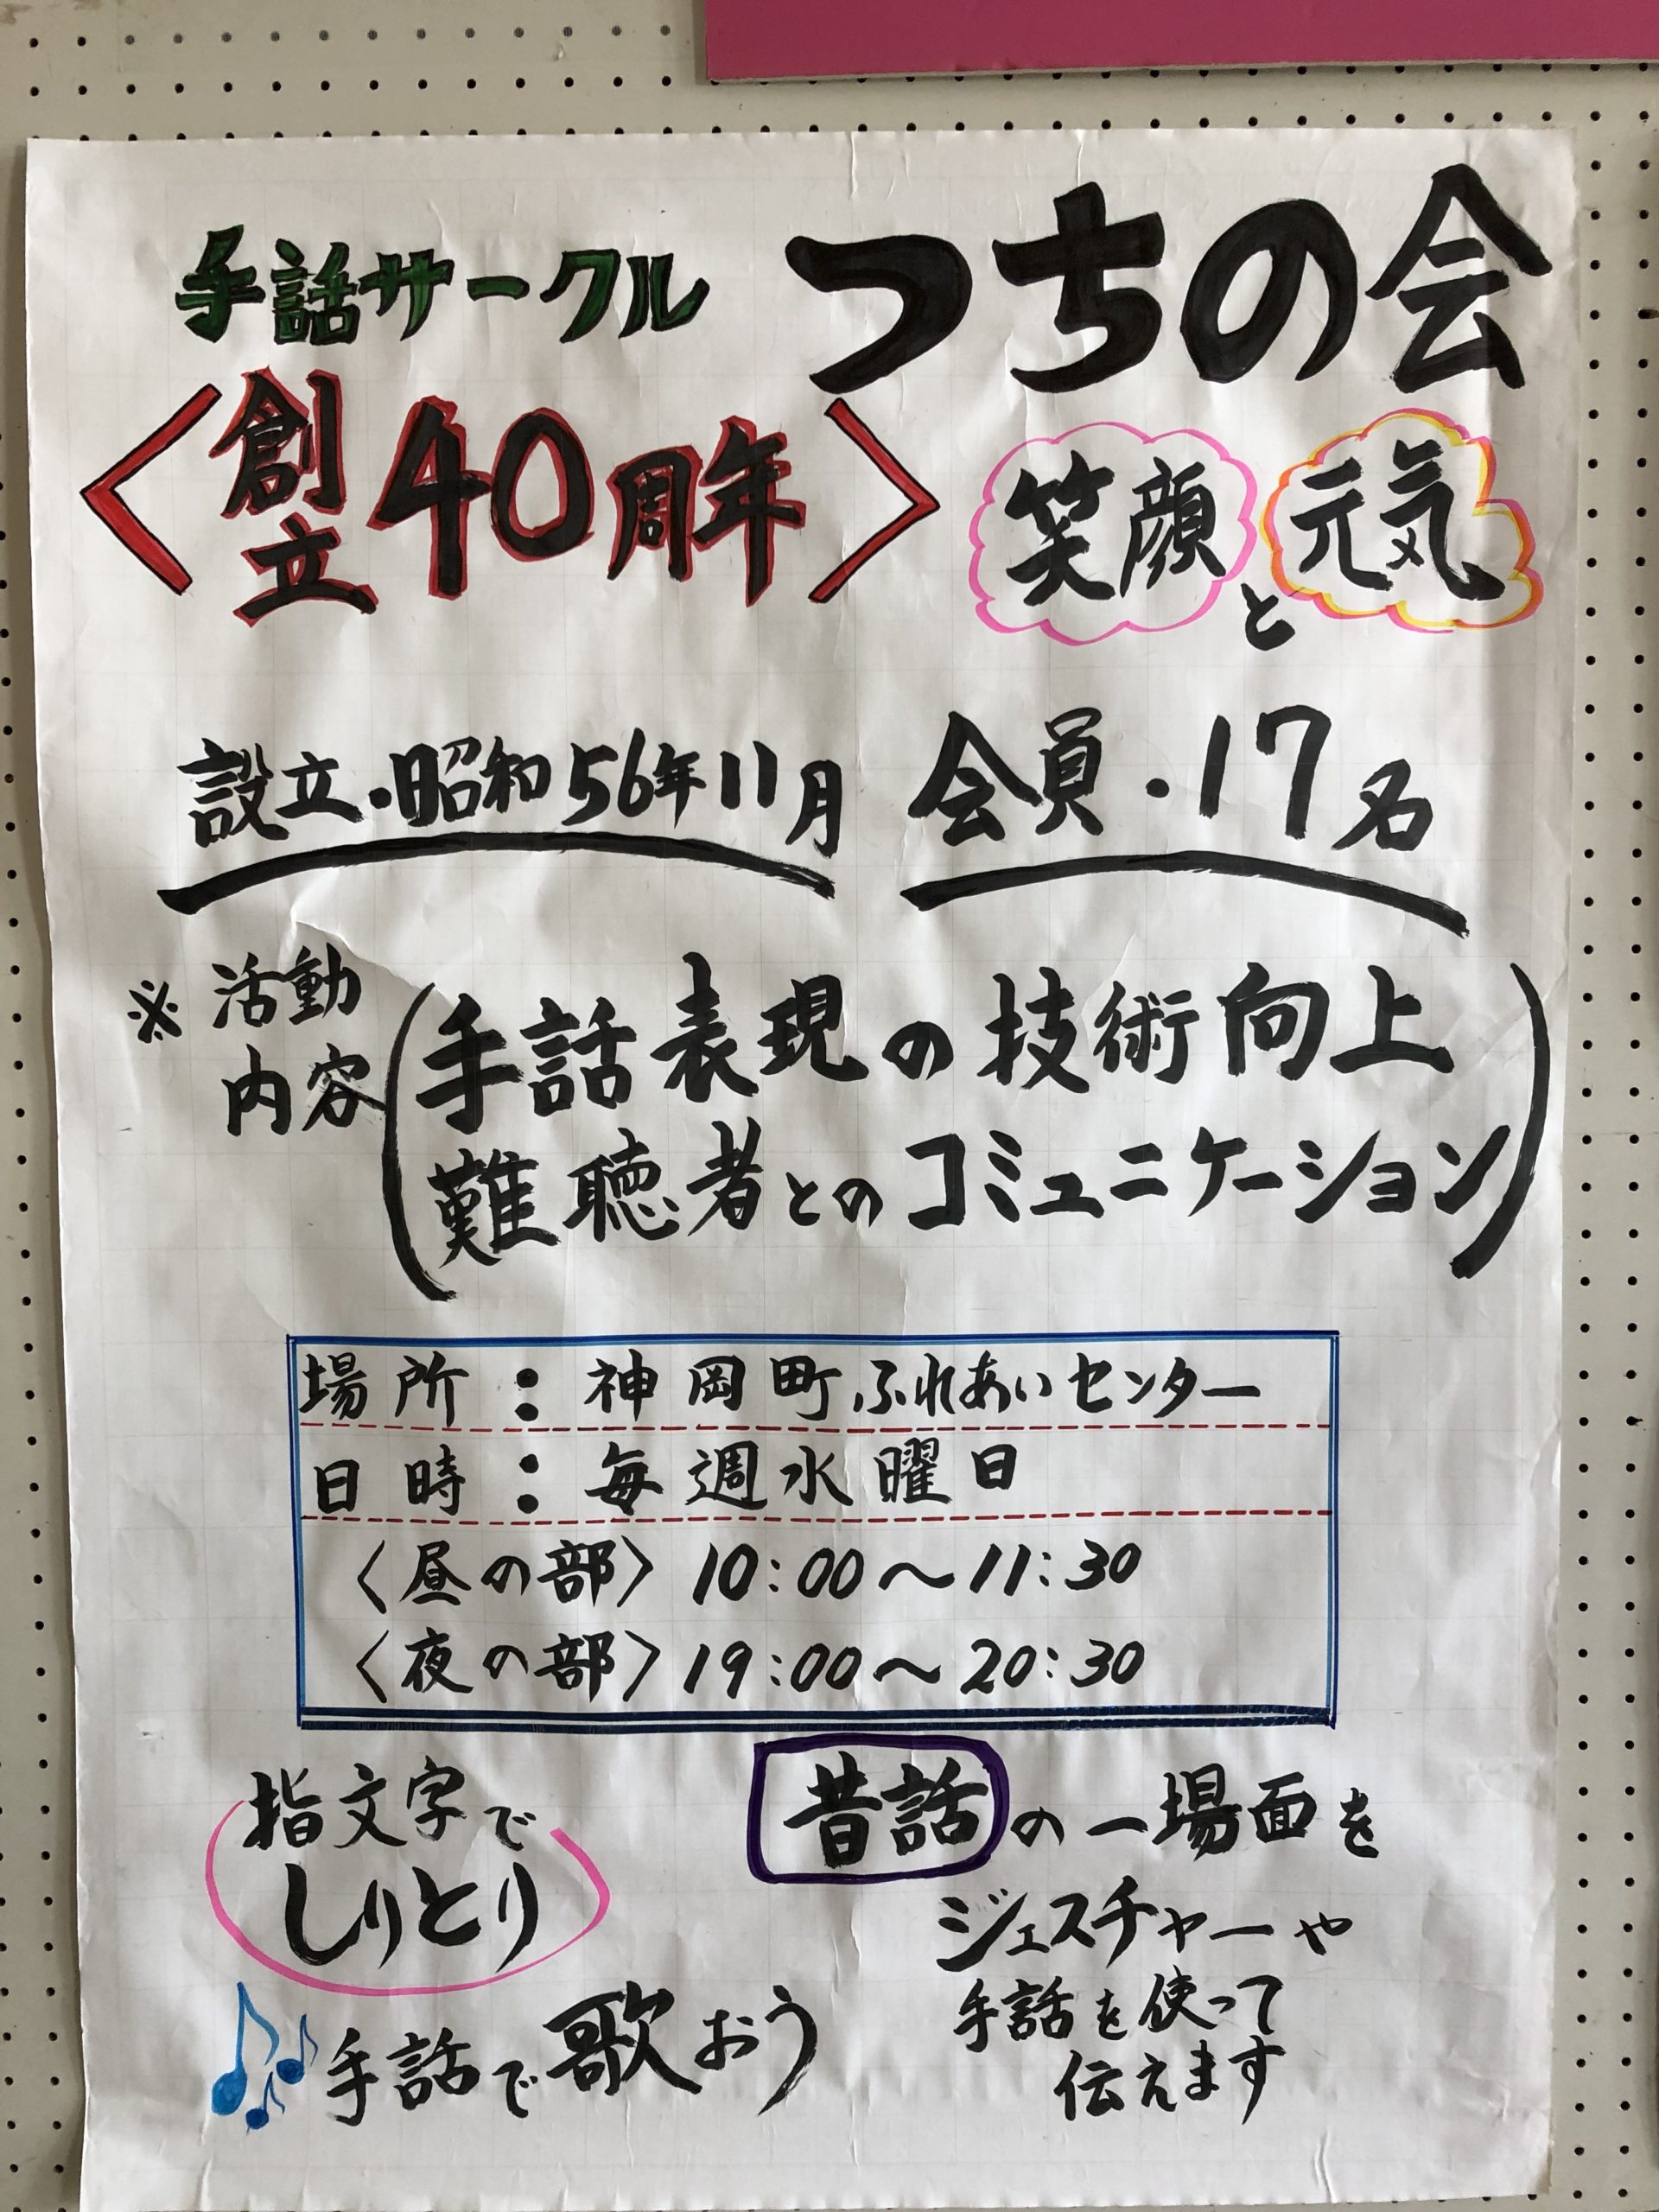 手話サークル つちの会
〈創立40周年〉 笑顔と元気
設立・昭和56年11月 会員・17名
※活動内容
手話表現の技術向上
難聴者とのコミュニケーション
場所：神岡町ふれあいセンター
日時：毎週水曜日
〈昼の部〉10:00〜11:30
〈夜の部〉19:00〜20:30
指文字で
しりとり
手話で歌おう
昔話の一場面を
ジェスチャーや
手話を使って
伝えます